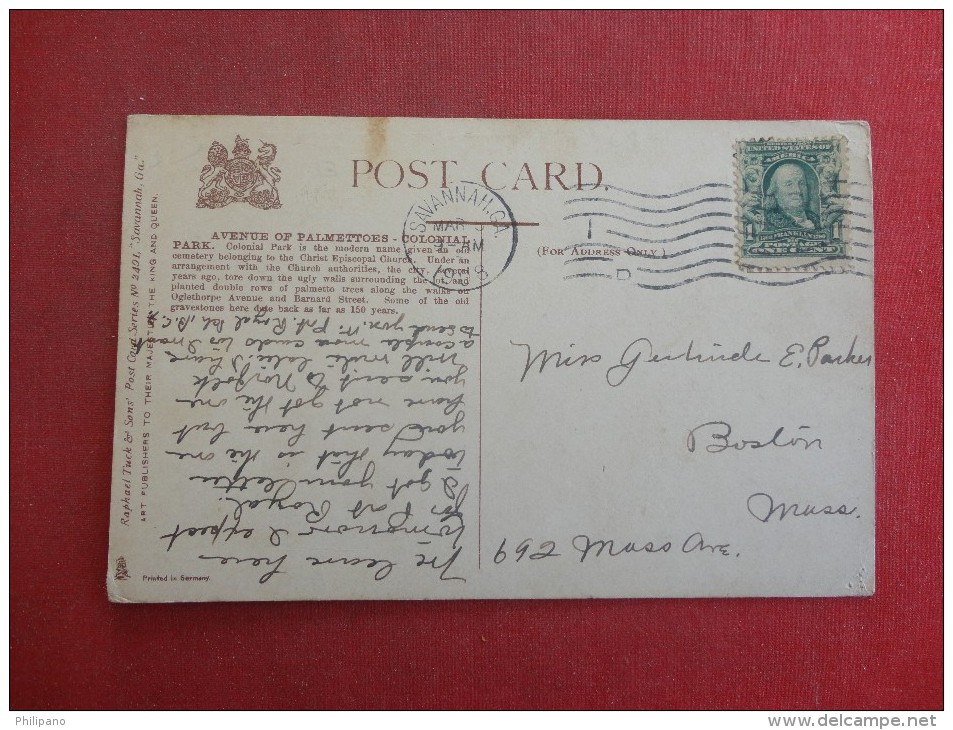 POST CARD.
AVENUE OF PALMETTOES - COLONIAL
PARK. Colonial Park is the modern name given an old
cemetery belonging to the Christ Episcopal Church. Under an
arrangement with the Church authorities, the city, several
years ago, tore down the ugly walls surrounding the lot, and
planted double rows of palmetto trees along the walks on
Oglethorpe Avenue and Barnard Street. Some of the old
gravestones here date back as far as 150 years.
SAVANNAH, GA.
MAR
9-AM
1908
D
SERIES 1902
UNITED STATES OF
AMERICA
FRANKLIN
POSTAGE
1 ONE CENT 1
(For Address Only.)
Raphael Tuck & Sons' Post Card Series No 2401, "Savannah, Ga."
ART PUBLISHERS TO THEIR MAJESTIES THE KING AND QUEEN.
Printed in Germany.
We leave here
tomorrow I expect
for Port Royal.
I got your letter
today that is the one
you sent here but
have not got the one
you sent to Norfolk
Will write later, I have
a couple more cards I want
to send you. Pt. Royal S.C.
Miss Gertrude E. Parker
Boston
Mass.
692 Mass Ave.
Philipano
www.delcampe.net